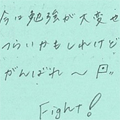 今は勉強が大変で
つらいかもしれけど
がんばれ〜 P.
Fight!